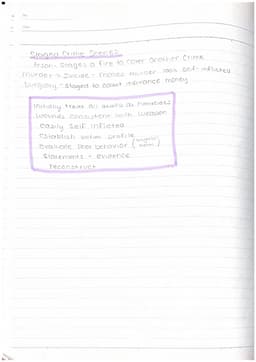 Staged Crime Scenes
Arson - Stages a fire to cover another crime
murder → Suicide - makes murder look self-inflicted
Burglary - Staged to collect insurance money
Initially treat all deaths as homicides
wounds consistent with weapon
easily self inflicted
Establish victim profile
Evaluate prior behavior
Statements = evidence
reconstruct